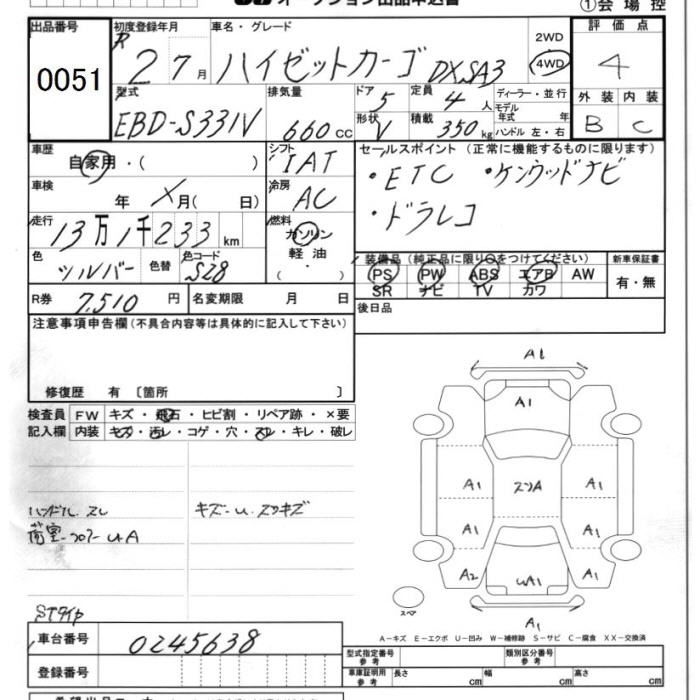 オークション出品申込書
①会場控
出品番号
0051
初度登録年月
R 2 7月
車名・グレード
ハイゼットカーゴ DX SA3
2WD
4WD
評価点
4
型式
EBD-S331V
排気量
660cc
ドア 5
定員 4人
形状 V
積載 350kg
ディーラー・並行
モデル年式 年
ハンドル 左・右
外装 内装
B C
車歴
自家用・( )
シフト
IAT
セールスポイント (正常に機能するものに限ります)
・ETC ・ケンウッドナビ
・ドラレコ
車検
年 月( 日)
冷房
AC
走行
13万1千233km
燃料
ガソリン
軽油
・
( )
色
シルバー
色替
色コード
S28
装備品(純正品に限り○をつけてください)
新車保証書
PS PW ABS エアB AW
SR ナビ TV カワ
有・無
R券 7,510円
名変期限 月 日
後日品
注意事項申告欄(不具合内容等は具体的に記入して下さい)
修復歴 有 〔箇所 〕
検査員記入欄
FW キズ・飛石・ヒビ割・リペア跡・×要
内装 キズ・汚レ・コゲ・穴・スレ・キレ・破レ
ハンドル スレ
キズ-U.スリキズ
荷室-コワ-UA
STタイヤ
A1
A1
A1 スリA A1
A1 A1
A2 UA1 A1
スペア
A1
A-キズ E-エクボ U-凹み W-補修跡 S-サビ C-腐食 XX-交換済
車台番号
0245638
登録番号
型式指定番号 参考
類別区分番号 参考
車庫証明用 参考 長さ cm 幅 cm 高さ cm